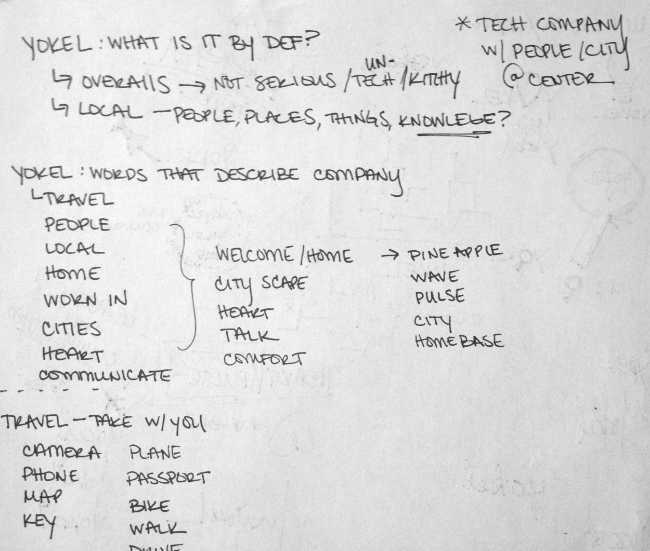 YOKEL: WHAT IS IT BY DEF?
↳ OVERALLS → NOT SERIOUS / UN-TECH / KITCHY
↳ LOCAL — PEOPLE, PLACES, THINGS, KNOWLEGE?
* TECH COMPANY
W/ PEOPLE / CITY
@ CENTER
YOKEL: WORDS THAT DESCRIBE COMPANY
↳ TRAVEL
PEOPLE
LOCAL
HOME
WORN IN
CITIES
HEART
COMMUNICATE
WELCOME / HOME → PINEAPPLE
CITY SCAPE
HEART
TALK
COMFORT
WAVE
PULSE
CITY
HOMEBASE
TRAVEL — TAKE W/ YOU
CAMERA
PHONE
MAP
KEY
PLANE
PASSPORT
BIKE
WALK
DRIVE